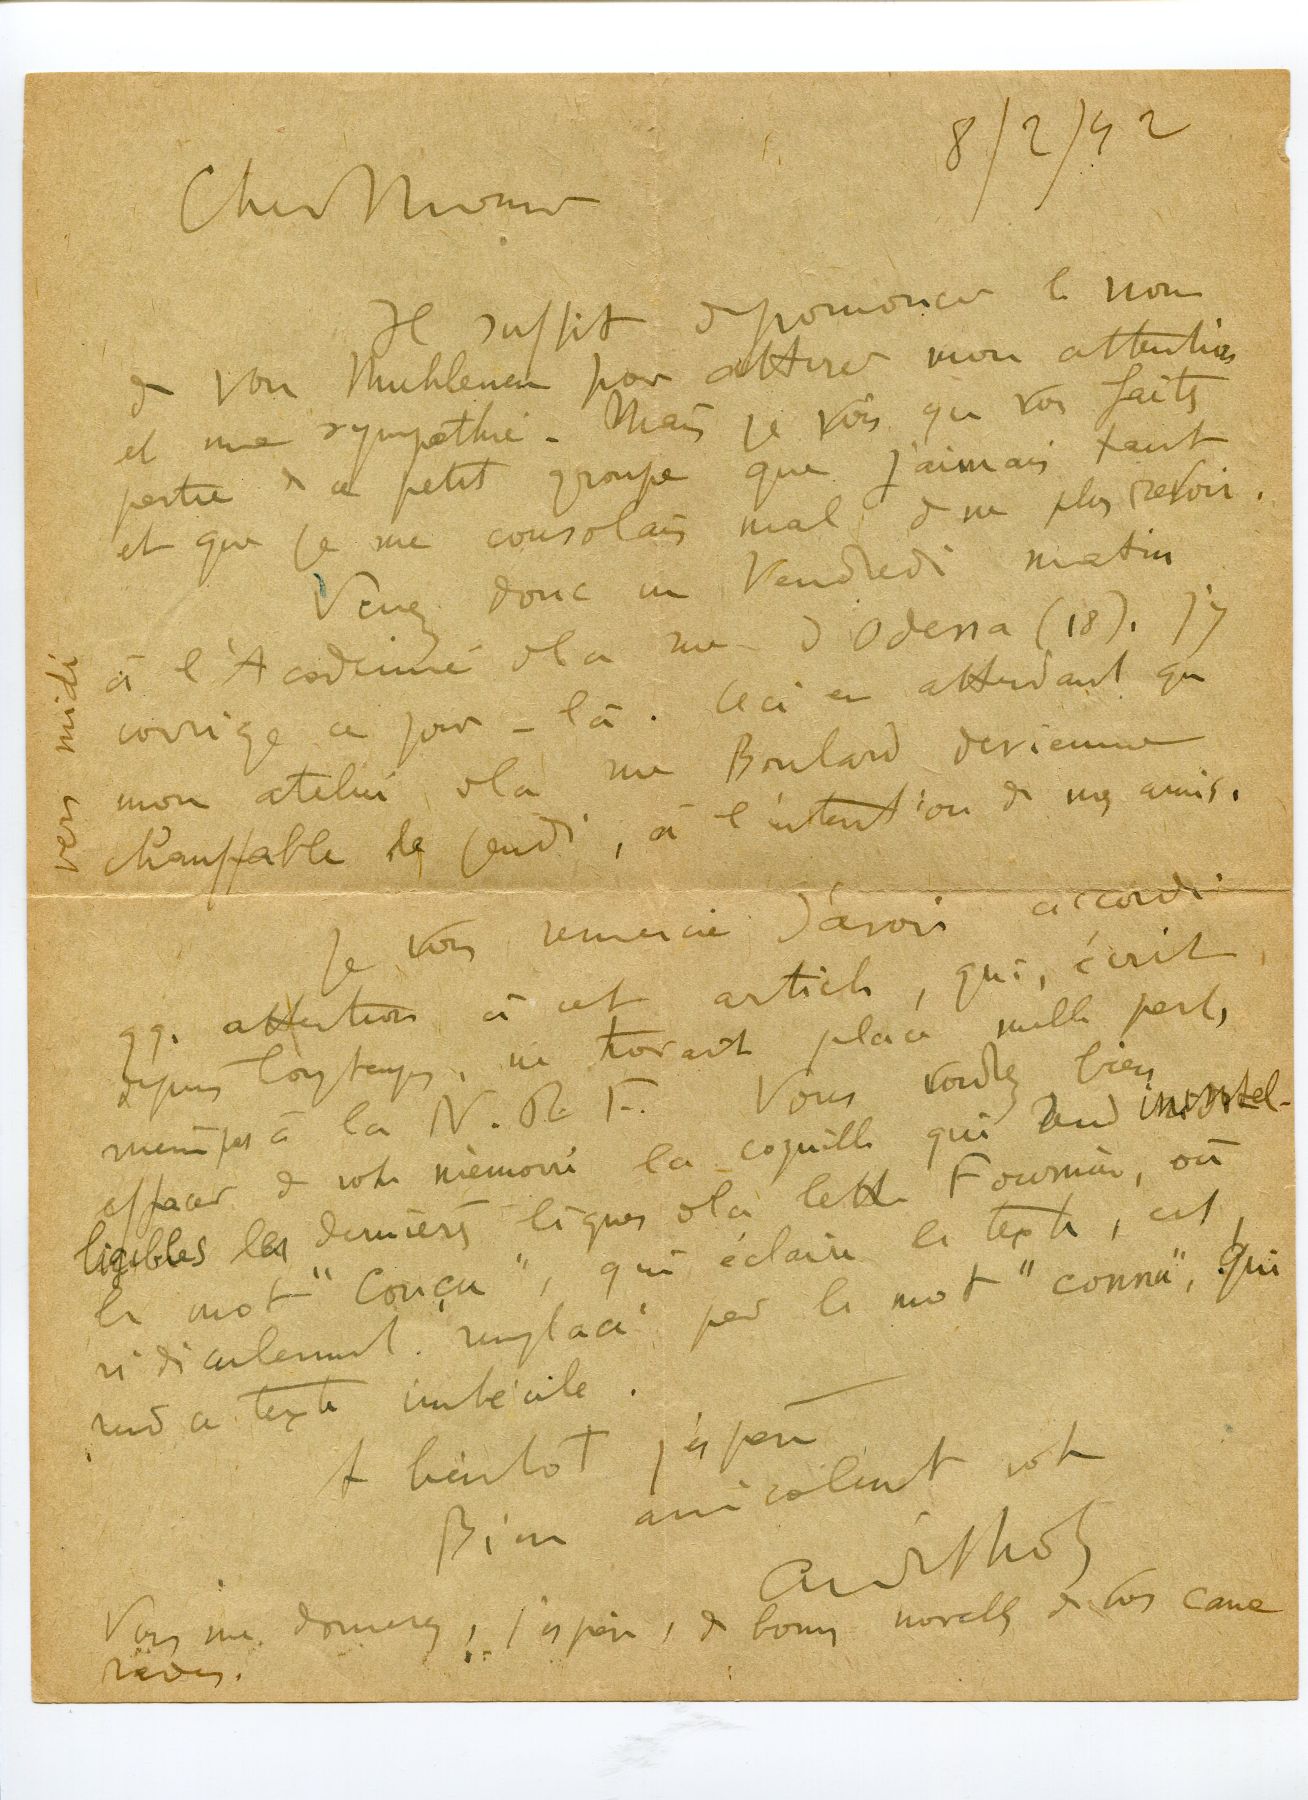 8/2/42
Cher Monsieur
Il suffit de prononcer le nom
de von Muhlenen pour attirer mon attention
et ma sympathie. Mais je vois que vous faites
partie de ce petit groupe que j'aimais tant
et que je me consolais mal de ne plus revoir.
Venez donc un Vendredi matin
à l'Académie de la rue d'Odessa (18). J'y
corrige ce jour-là. Ceci en attendant que
mon atelier de la rue Boulard devienne
chauffable le jeudi, à l'intention de mes amis.
vers midi
Je vous remercie d'avoir accordé
qq. attention à cet article, qui, écrit
depuis longtemps, ne trouvait place nulle part,
même pas à la N.R.F. Vous voudrez bien
effacer de votre mémoire la coquille qui rend inintel-
ligibles les dernières lignes de la lettre Fournier, où
le mot "conçu", qui éclaire le texte, est
ridiculement remplacé par le mot "connu", qui
rend ce texte imbécile.
A bientôt j'espère
Bien amicalement votre
André Lhote
Vous me donnerez, j'espère, de bonnes nouvelles de vos cama
rades.